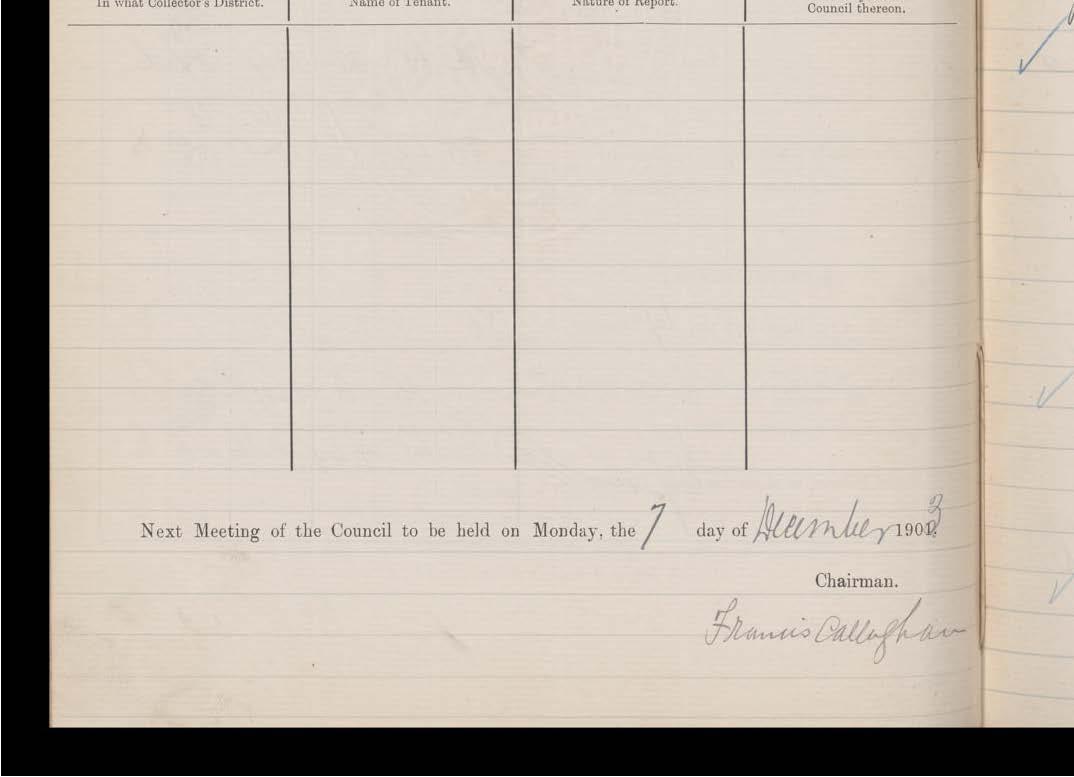 In what Collector's District. Name of Tenant. Nature of Report. Council thereon.
Next Meeting of the Council to be held on Monday, the 7 day of December 1903
Chairman.
Francis Callaghan